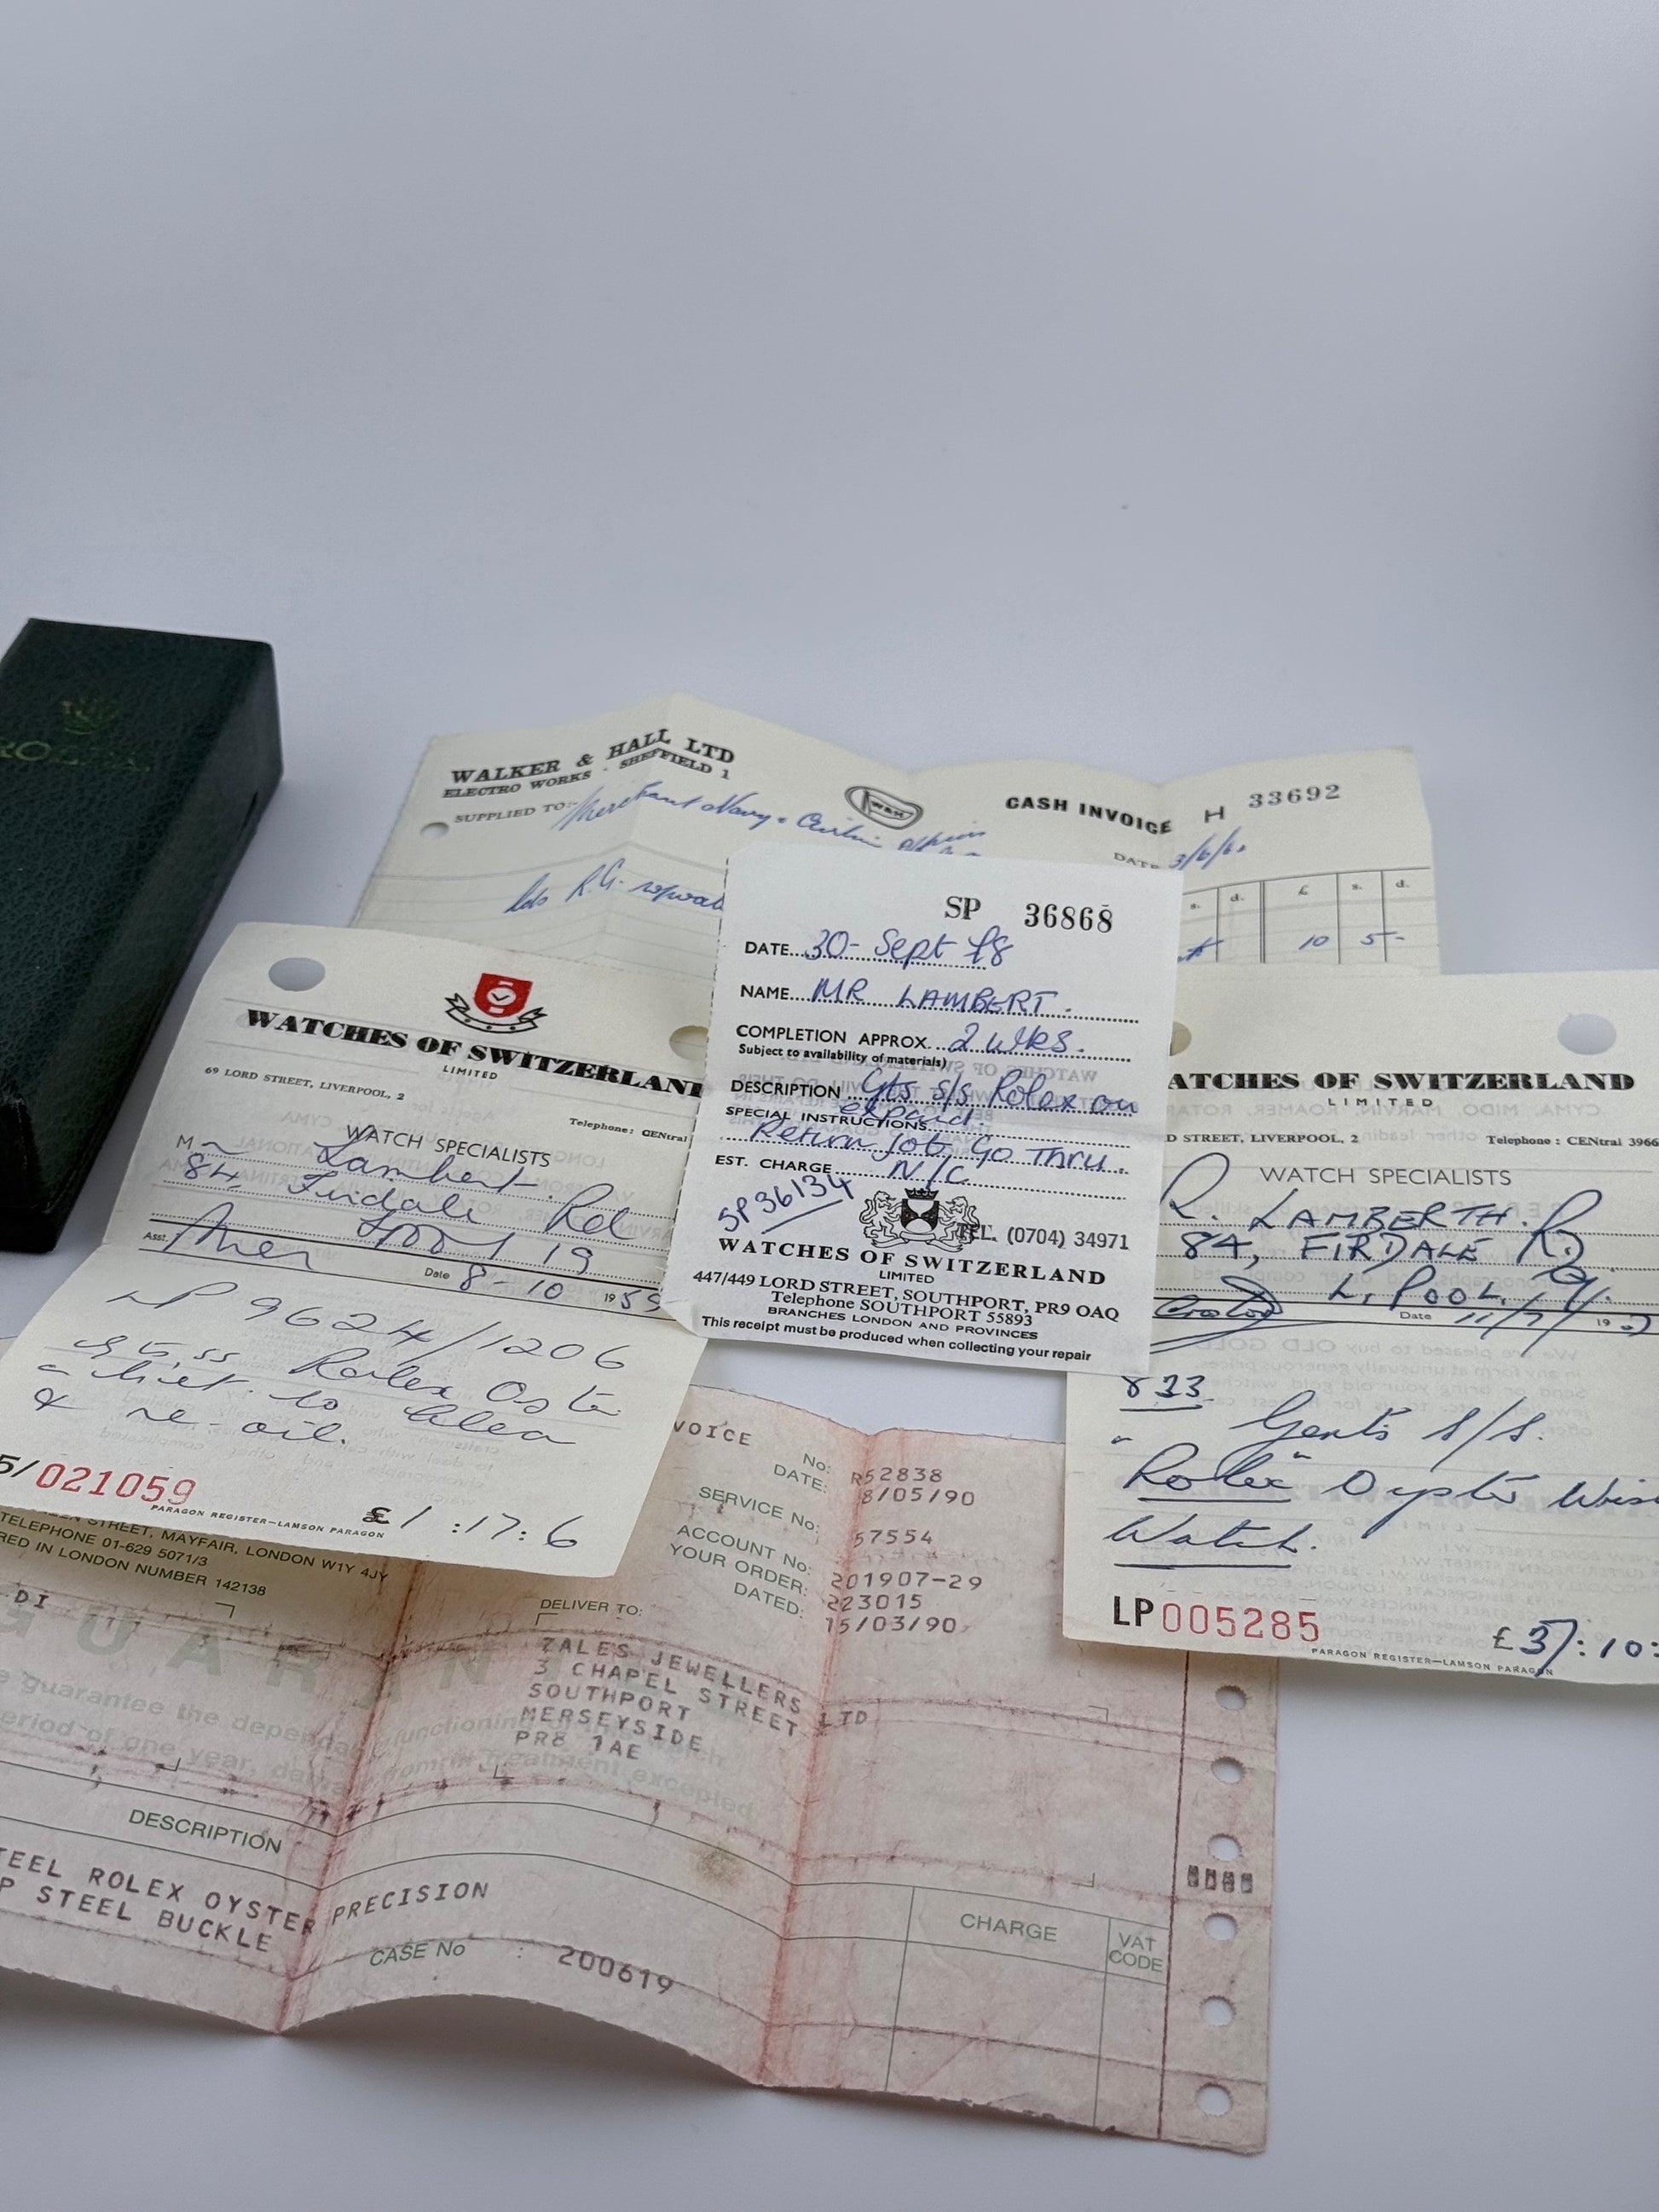 ROLEX
WALKER & HALL LTD
ELECTRO WORKS · SHEFFIELD 1
SUPPLIED TO:- Merchant Navy &
W&H
CASH INVOICE H 33692
DATE 3/6/6
R.G.
s. d. £ s. d.
10 5 -
WATCHES OF SWITZERLAND
LIMITED
69 LORD STREET, LIVERPOOL, 2
Telephone: CENtral
WATCH SPECIALISTS
M Lambert.
84 Firdale Rd
L'pool 19
Asst.
Date 8-10 1959
LP 9624/1206
Rolex
to clean
& re-oil.
5/021059
PARAGON REGISTER—LAMSON PARAGON
£1:17:6
SP 36868
DATE 30-Sept
NAME MR LAMBERT.
COMPLETION APPROX. 2 wks.
Subject to availability of materials)
DESCRIPTION Gts s/s Rolex on
expand
SPECIAL INSTRUCTIONS
Return job, Go Thru.
EST. CHARGE N/C
SP36134
TEL. (0704) 34971
WATCHES OF SWITZERLAND
LIMITED
447/449 LORD STREET, SOUTHPORT, PR9 OAQ
Telephone SOUTHPORT 55893
BRANCHES LONDON AND PROVINCES
This receipt must be produced when collecting your repair
ATCHES OF SWITZERLAND
LIMITED
D STREET, LIVERPOOL, 2
Telephone : CENtral 3966
WATCH SPECIALISTS
R. LAMBERTH.
84, FIRDALE RD
L.POOL, 9/.
Date 11/7/ 19
833
Gents s/s.
"Rolex" Oyster Wris
Watch.
LP005285
£3/:10:
PARAGON REGISTER—LAMSON PARAGON
STREET, MAYFAIR, LONDON W1Y 4JY
TELEPHONE 01-629 5071/3
RED IN LONDON NUMBER 142138
DI
VOICE
No: R52838
DATE: 8/05/90
SERVICE No: 57554
ACCOUNT No: 201907-29
YOUR ORDER: 223015
DATED: 15/03/90
DELIVER TO:
ZALES JEWELLERS LTD
3 CHAPEL STREET
SOUTHPORT
MERSEYSIDE
PR8 1AE
GUARAN
e guarantee the depend
functioning
eriod of one year, da
from treatment excepted
DESCRIPTION
CHARGE
VAT CODE
TEEL ROLEX OYSTER PRECISION
P STEEL BUCKLE
CASE No : 200619